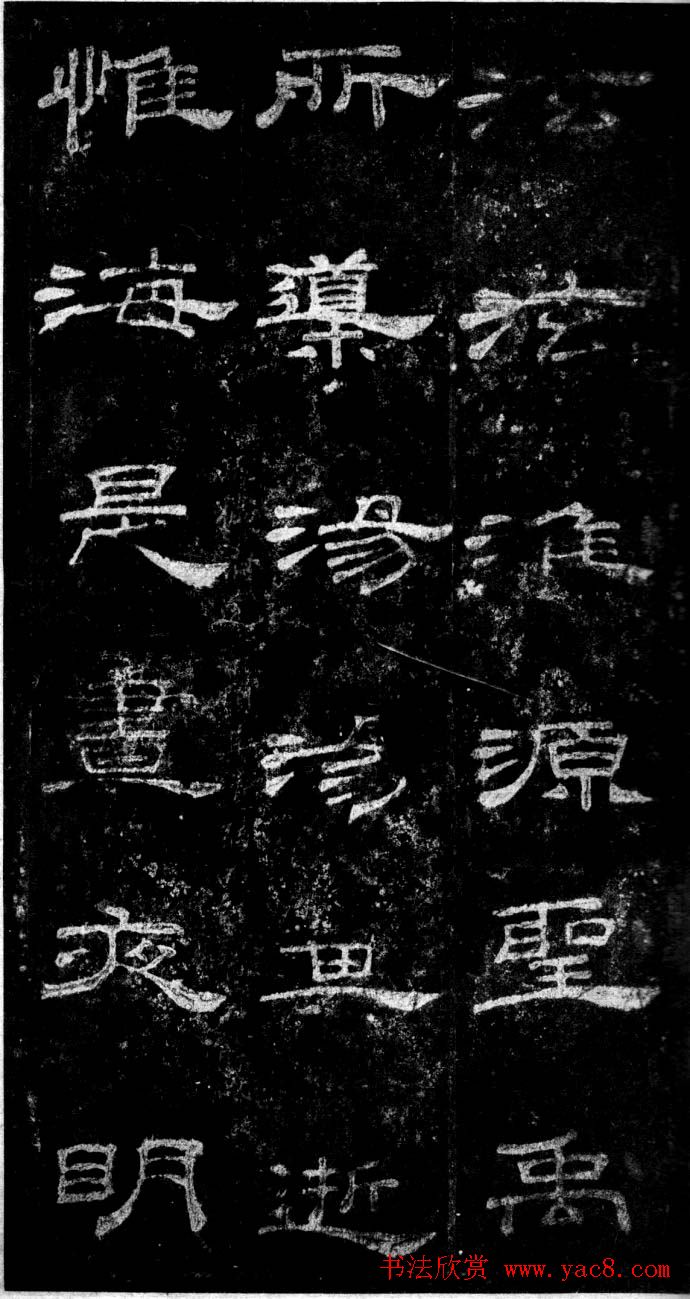 泫泫淮源聖禹
所導湯湯其逝
惟海是晝夜明
书法欣赏 www.yac8.com